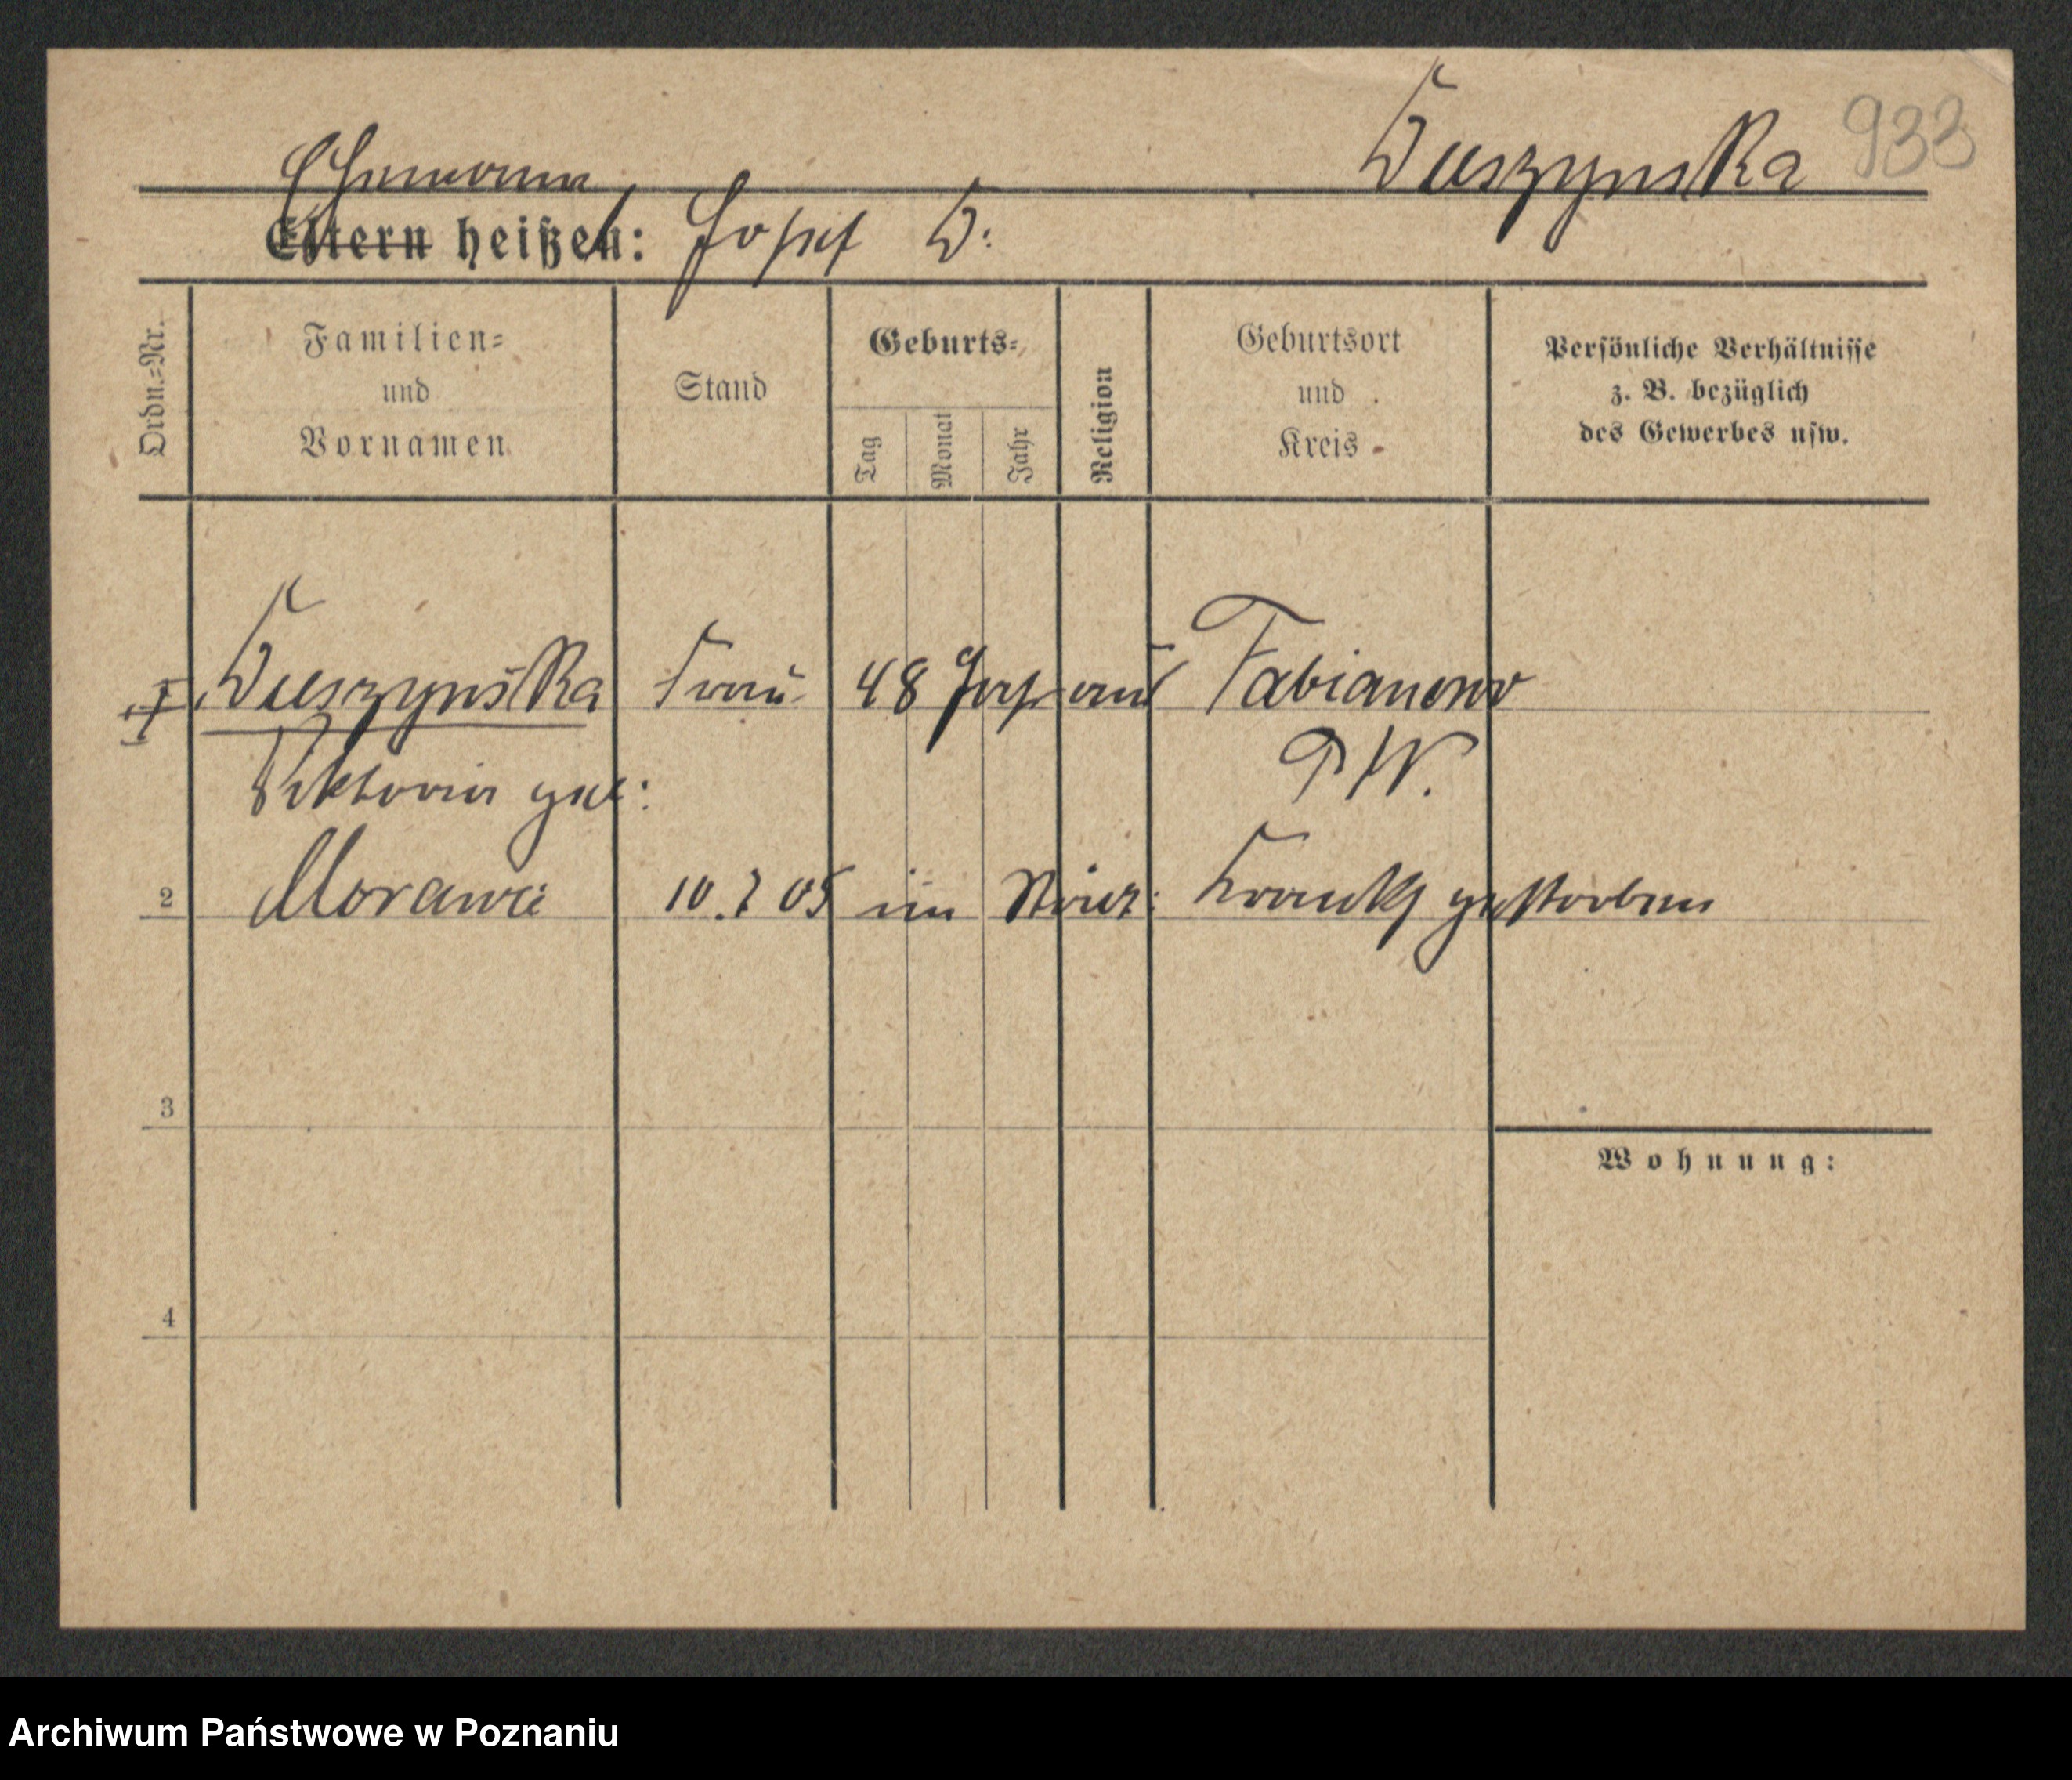 Duszynska 933
Ehemann
Eltern heißen: Josef D.
Ordn.=Nr.
Familien=
und
Vornamen
Stand
Geburts=
Tag
Monat
Jahr
Religion
Geburtsort
und
Kreis
Persönliche Verhältnisse
z. B. bezüglich
des Gewerbes usw.
Duszynska Frau 48 Jahr aus Fabianowo
P/W.
Viktoria geb:
2 Morawa 10.2 05 im Krankh gestorben
3
Wohnung:
4
Archiwum Państwowe w Poznaniu